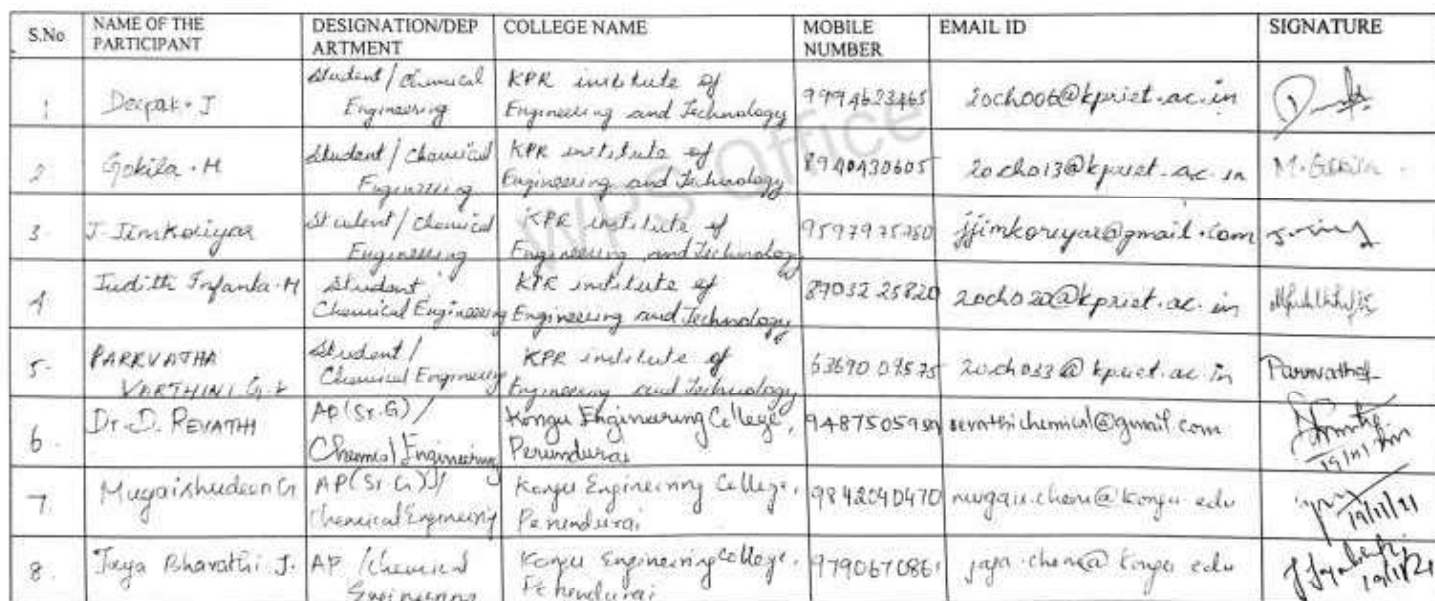 S.No NAME OF THE PARTICIPANT DESIGNATION/DEPARTMENT COLLEGE NAME MOBILE NUMBER EMAIL ID SIGNATURE
1 Deepak. J Student / Chemical Engineering KPR institute of Engineering and Technology 9994623465 20ch006@kpriet.ac.in
2 Gokila. M Student / Chemical Engineering KPR institute of Engineering and Technology 8940430605 20ch013@kpriet.ac.in M. Gokila
3. J. Jimkoriyar Student / Chemical Engineering KPR institute of Engineering and Technology jjimkoriyar@gmail.com
4 Judith Infanta. M Student Chemical Engineering KPR institute of Engineering and Technology 89032 25820 20ch020@kpriet.ac.in
5. PARRVATHA VARTHINI Student / Chemical Engineering KPR institute of Engineering and Technology 20ch033@kpriet.ac.in
6. Dr. D. REVATHI AP(Sr.G) / Chemical Engineering Kongu Engineering College, Perundurai revathichemical@gmail.com
7. Mugaishudeen G AP(Sr G) / Chemical Engineering Kongu Engineering College, Perundurai 9842040470 19/11/21
8. Jaya Bharathi J. AP / Chemical Engineering Kongu Engineering College, Perundurai
WPS Office